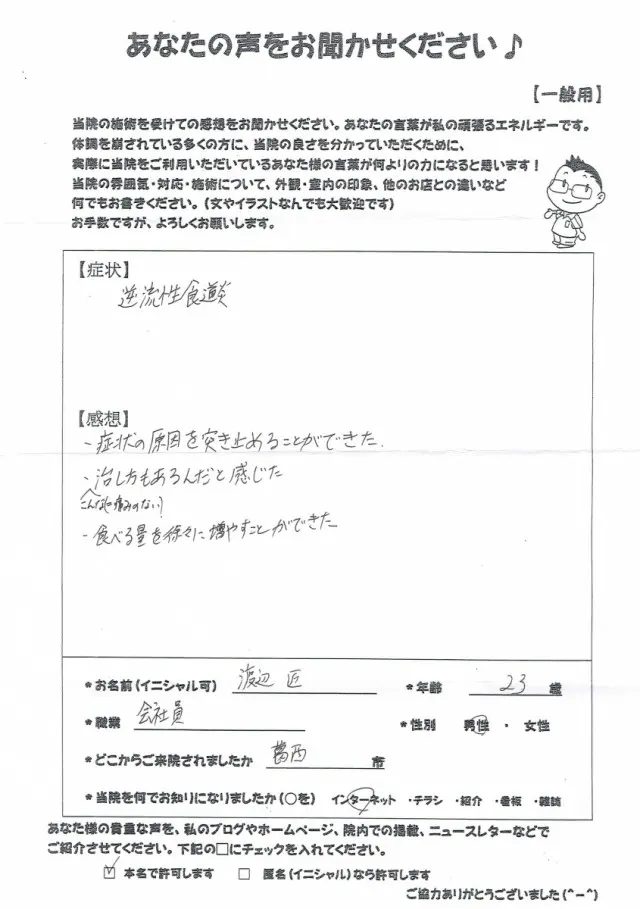 あなたの声をお聞かせください♪
【一般用】
当院の施術を受けての感想をお聞かせください。あなたの言葉が私の頑張るエネルギーです。
体調を崩されている多くの方に、当院の良さを分かっていただくために、
実際に当院をご利用いただいているあなた様の言葉が何よりの力になると思います！
当院の雰囲気・対応・施術について、外観・室内の印象、他のお店との違いなど
何でもお書きください。（文やイラストなんでも大歓迎です）
お手数ですが、よろしくお願いします。
【症状】
逆流性食道炎
【感想】
・症状の原因を突き止めることができた。
・治し方もあるんだと感じた
（こんなに痛みのない）
・食べる量を徐々に増やすことができた
＊お名前（イニシャル可） 渡辺 匠 ＊年齢 23 歳
＊職業 会社員 ＊性別 男性 ・ 女性
＊どこからご来院されましたか 葛西 市
＊当院を何でお知りになりましたか（○を） インターネット ・チラシ ・紹介 ・看板 ・雑誌
あなた様の貴重な声を、私のブログやホームページ、院内での掲載、ニュースレターなどで
ご紹介させてください。下記の□にチェックを入れてください。
☑ 本名で許可します □ 匿名（イニシャル）なら許可します
ご協力ありがとうございました(^-^)